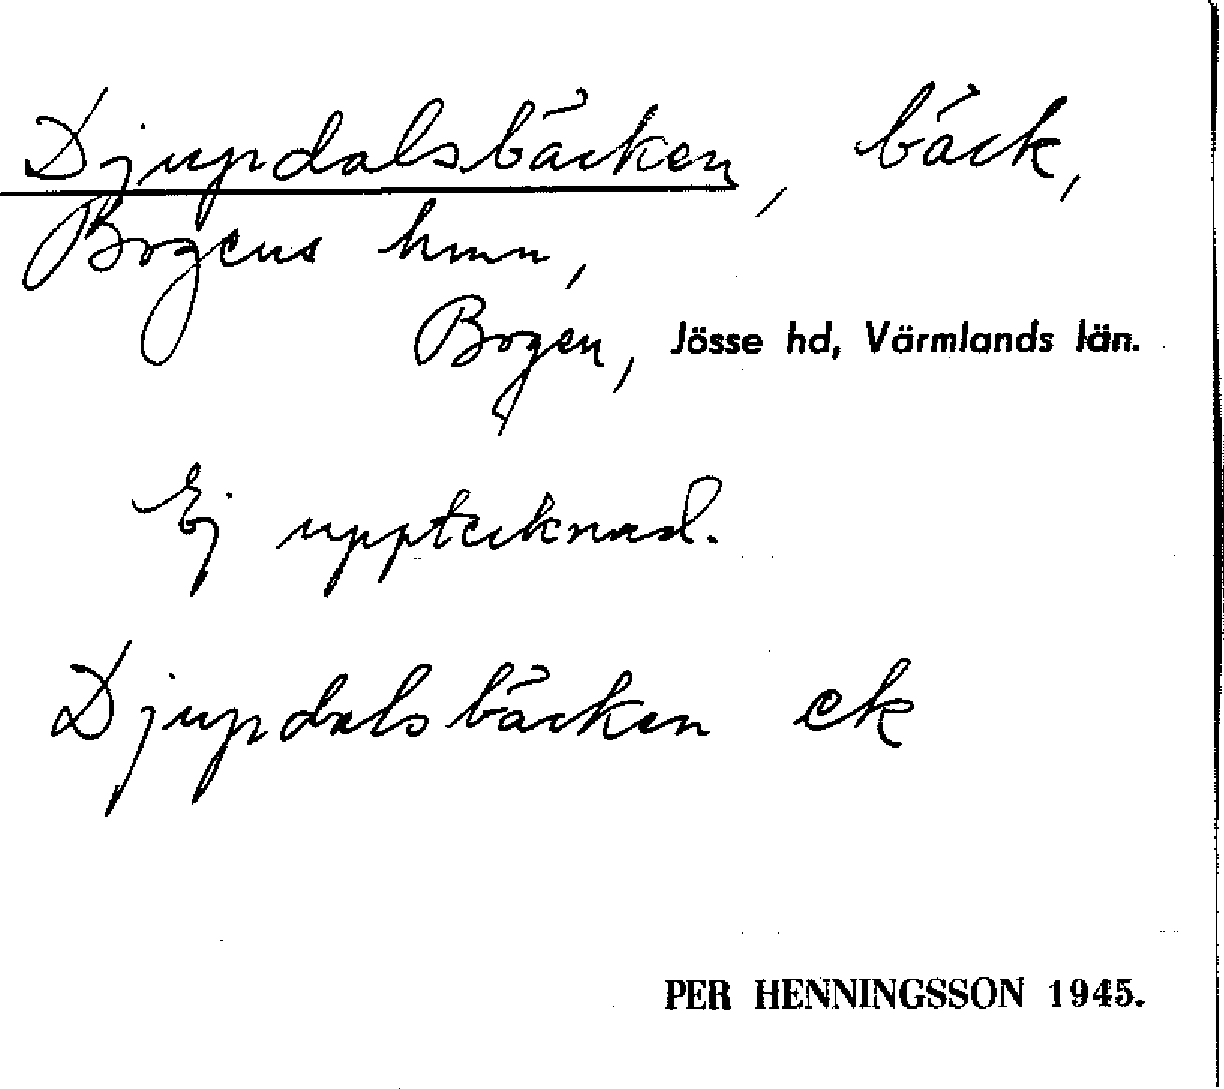 Djupdalsbäcken, bäck,
Bogens hmn,
Bogen, Jösse hd, Värmlands län.
Ej upptecknad.
Djupdalsbäcken ek
PER HENNINGSSON 1945.